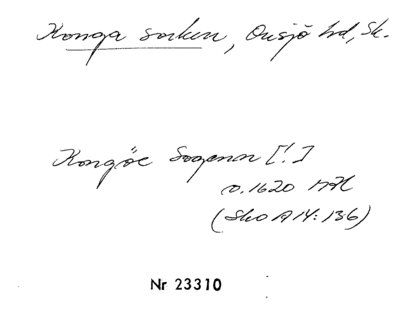 Konga socken, Onsjö hd, Sk.
Kongöe Sogenn [!]
o. 1620 
(Sko A 14: 136)
Nr 23310